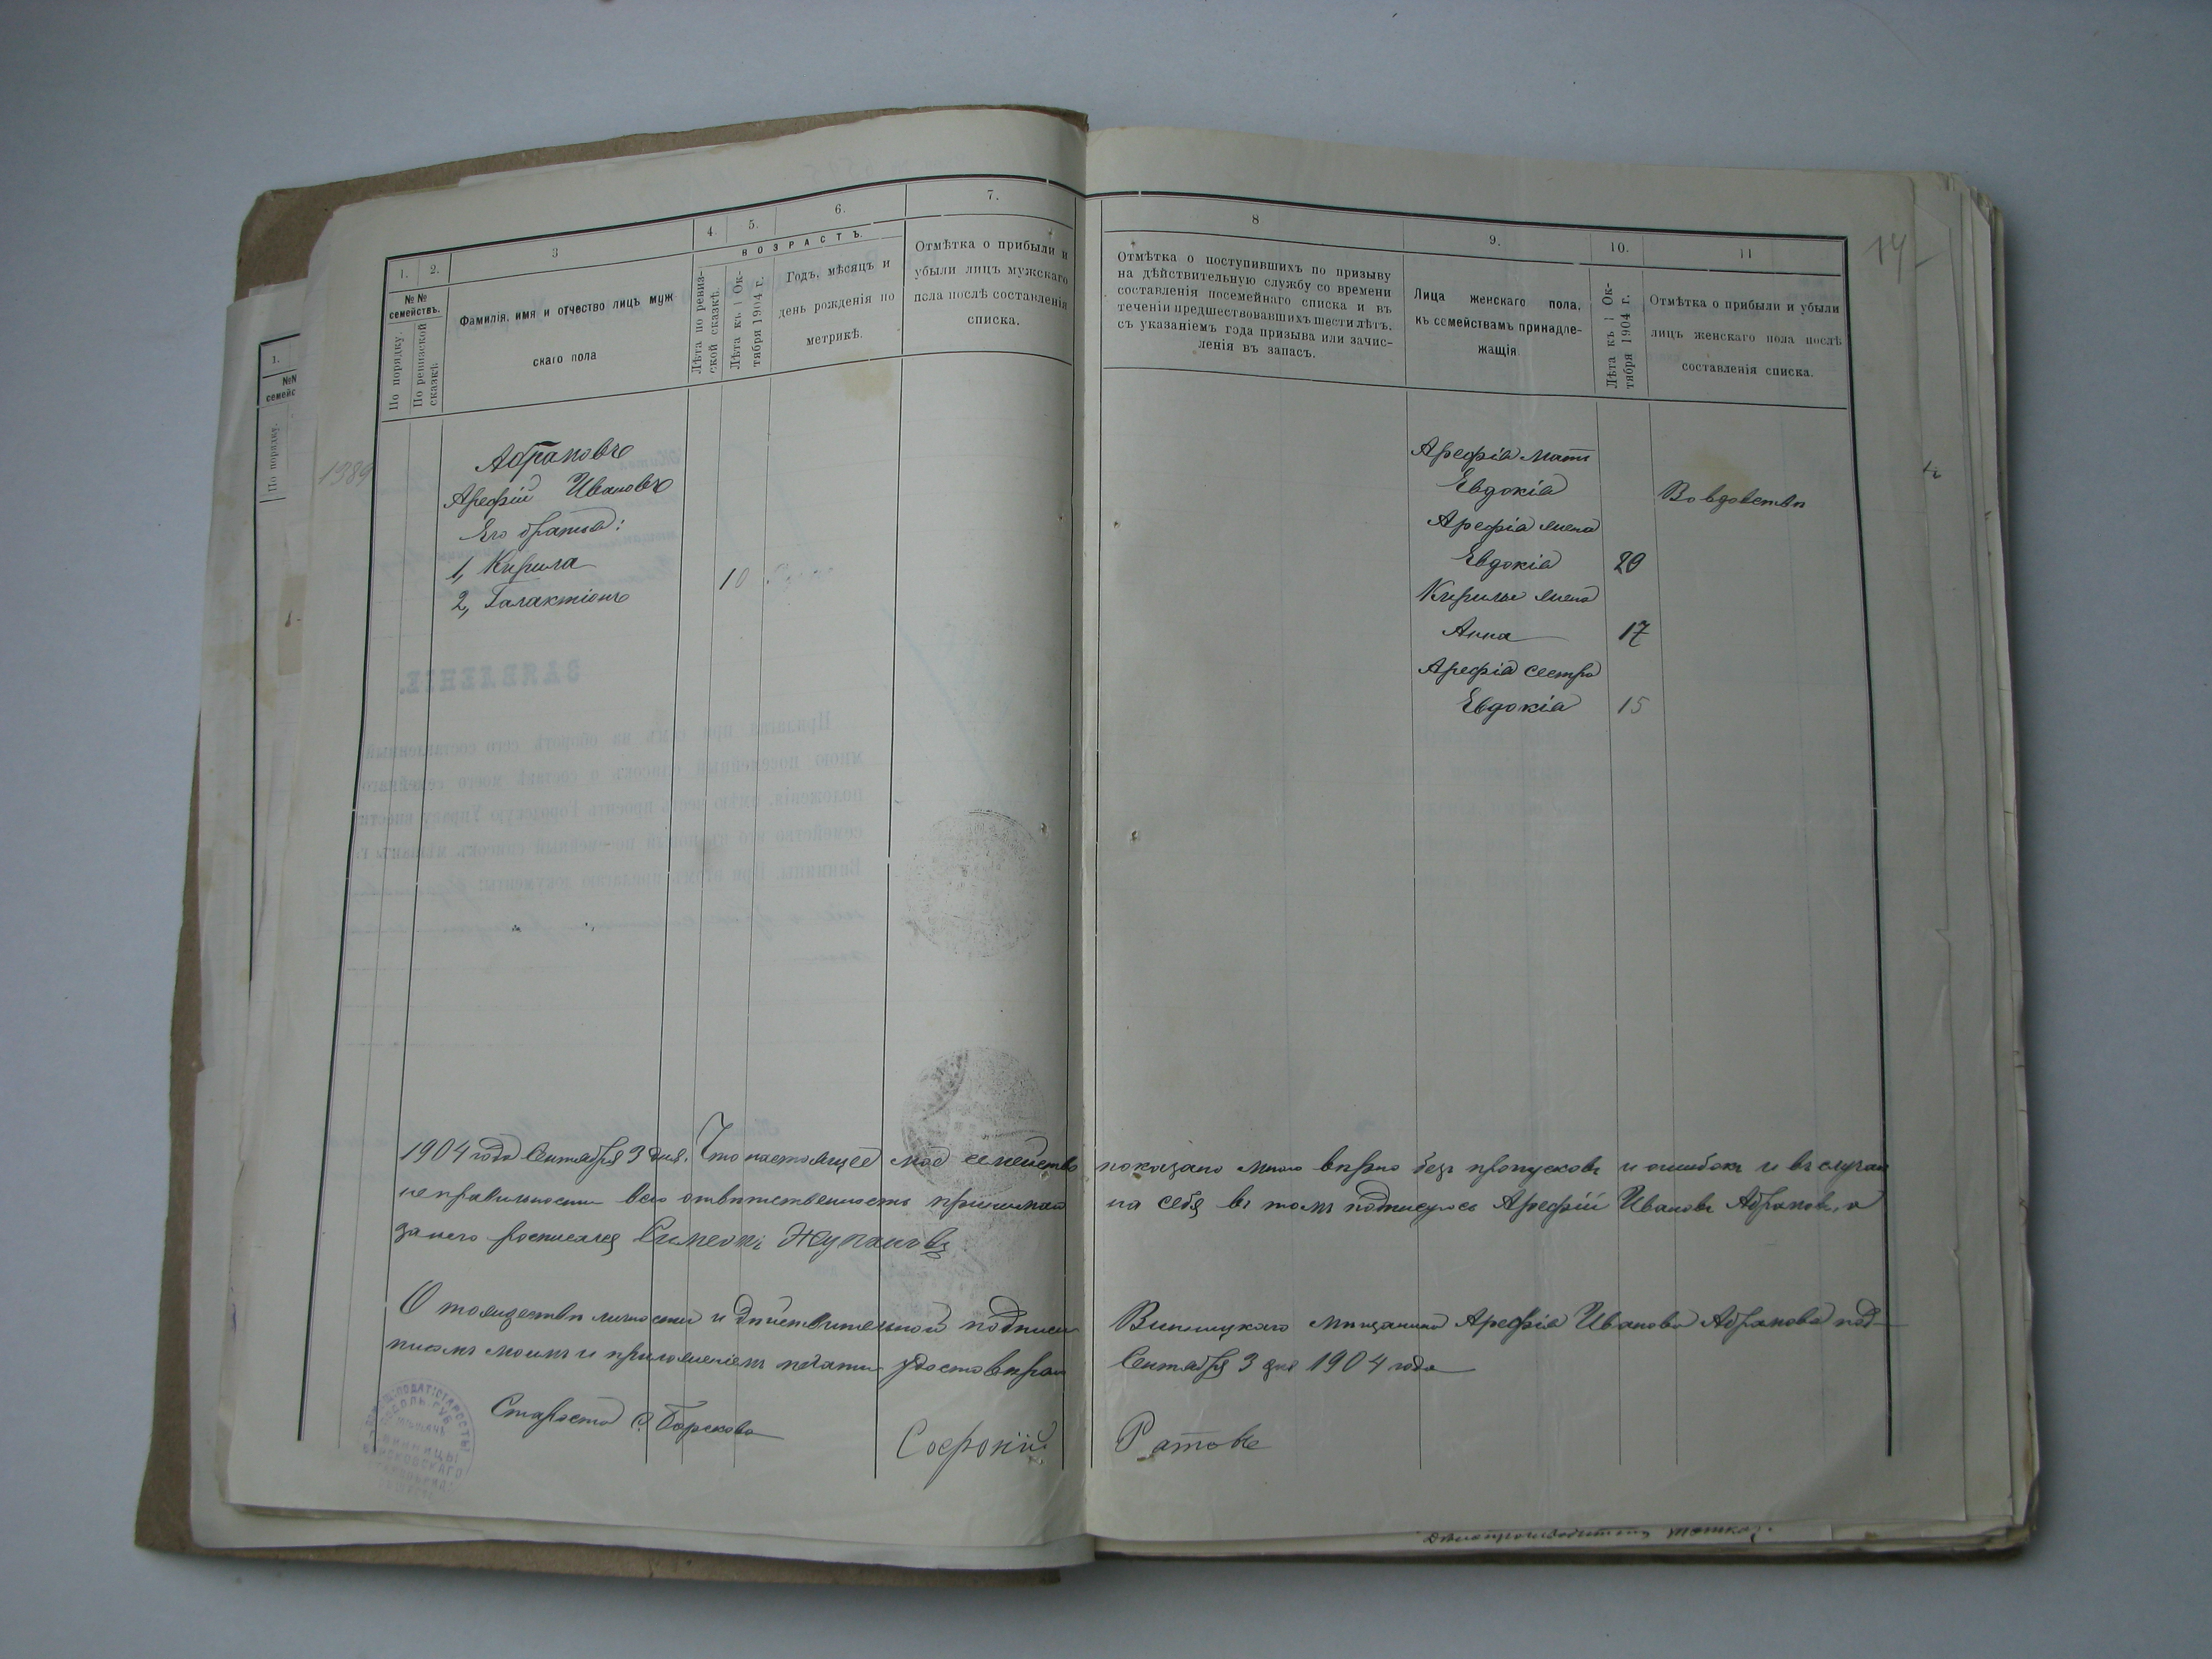 14
1. 2. 3 4. 5. 6. 7.
№ № семействъ.
По порядку.
По ревизской сказкѣ.
Фамилія, имя и отчество лицъ муж
скаго пола
ВОЗРАСТЪ.
Лѣта по ревиз-
ской сказкѣ.
Лѣта къ 1 Ок-
тября 1904 г.
Годъ, мѣсяцъ и
день рожденія по
метрикѣ.
Отмѣтка о прибыли и
убыли лицъ мужскаго
пола послѣ составленія
списка.
1389
Абрамовъ
Арефій Ивановъ
Его братья:
1, Кирила
2, Галактіонъ 10
8 9. 10. 11
Отмѣтка о поступившихъ по призыву
на дѣйствительную службу со времени
составленія посемейнаго списка и въ
теченіи предшествовавшихъ шести лѣтъ,
съ указаніемъ года призыва или зачис-
ленія въ запасъ.
Лица женскаго пола,
къ семействамъ принадле-
жащія.
Лѣта къ 1 Ок-
тября 1904 г.
Отмѣтка о прибыли и убыли
лицъ женскаго пола послѣ
составленія списка.
Арефія мать
Евдокія Во вдовствѣ
Арефія жена
Евдокія 20
Кирилы жена
Анна 17
Арефія сестра
Евдокія 15
1904 года Сентября 3 дня. Что настоящее моё семейство показано мною вѣрно безъ пропусковъ и ошибокъ и въ случаи
неправильности всю отвѣтственность принимаю на себя въ томъ подписуюсь Арефій Ивановъ Абрамовъ, а
за него росписался Симеонъ Жупановъ
О тождествѣ личности и дѣйствительной подписи Винницкаго мѣщанина Арефія Иванова Абрамова под-
письмъ моимъ и приложеніемъ печати удостовѣряю Сентября 3 дня 1904 года
Староста С. Борскова Софроній Ратовъ
1.
№№
семейс
По порядку.